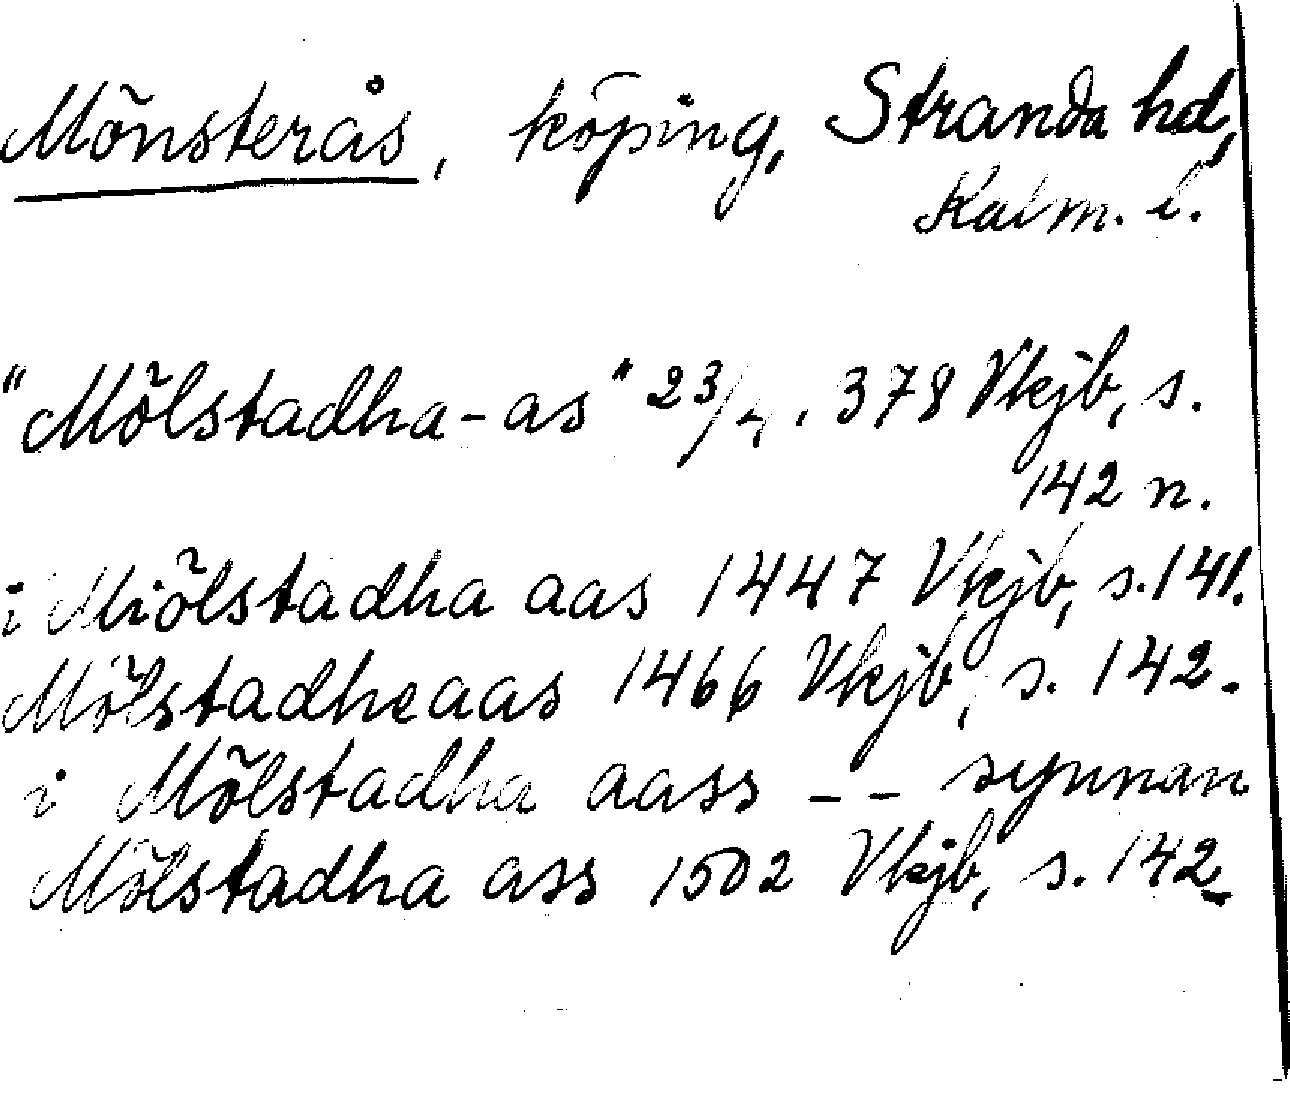 Mönsterås, köping, Stranda hd,
Kalm. l.
"Mölstadha-as" 23/4 1378 Vkjb, s.
142 n.
i Miölstadha aas 1447 Vkjb, s. 141.
Mölstadheaas 1466 Vkjb, s. 142.
i Mölstadha aass -- synnan
Mölstadha ass 1502 Vkjb, s. 142.